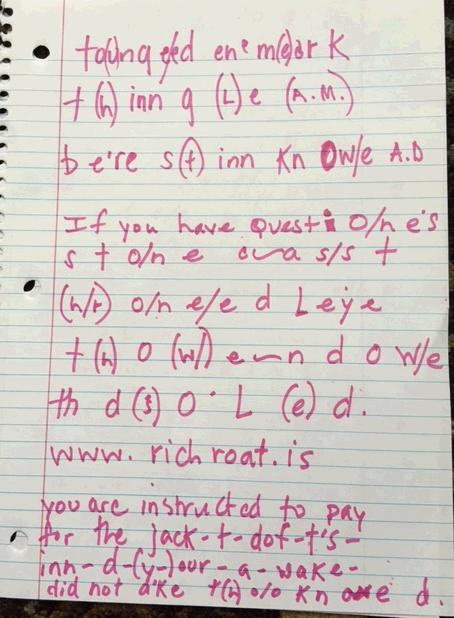 ta(u)nq efed en e m(e)ar K
t (h) inn g (L) e (A.M.)
b e're s(t) inn Kn Ow/e A.D
If you have Questi o/n e's
s t o/n e s/s t
(h/r) o/n e/e d L eye
t (h) o (w/) e n d o w/e
th d ($) O ' L (e) d.
www. rich roat. is
you are instructed to pay
for the jack-t-dof-t's-
inn-d-(y-)our-a-wake-
did not a'ke t(h) o/o Kn e d.